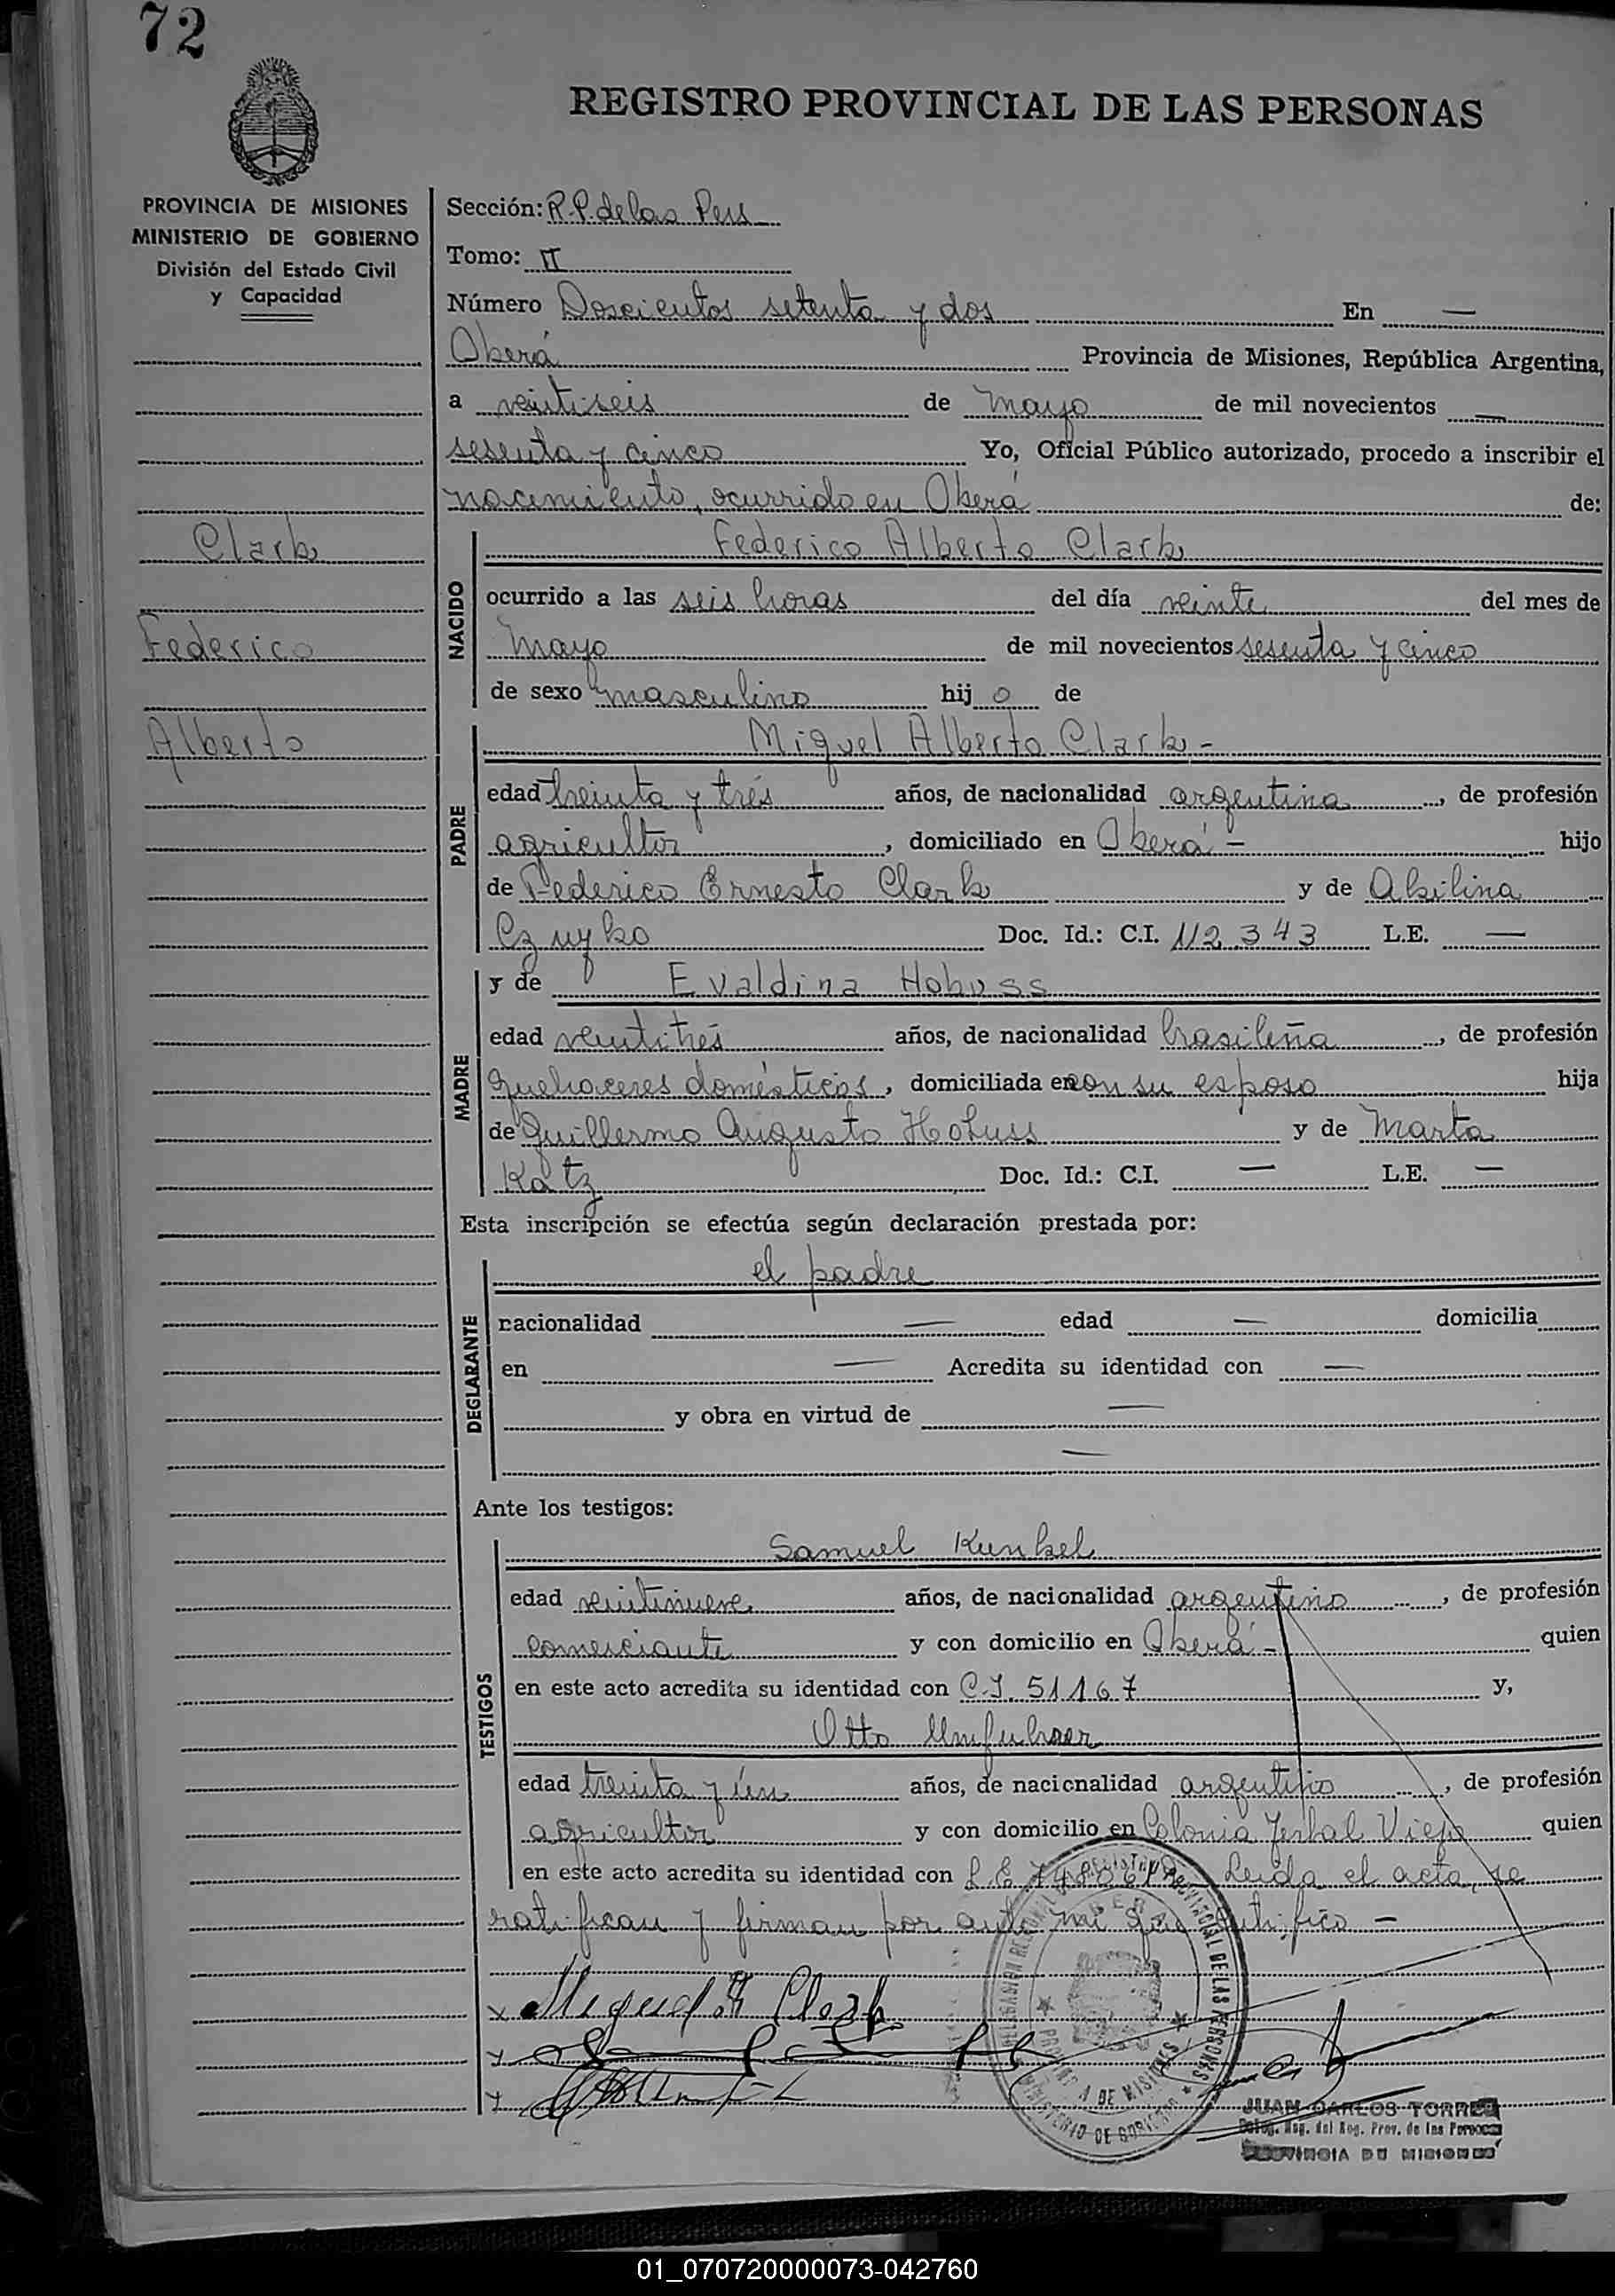 72
REGISTRO PROVINCIAL DE LAS PERSONAS
PROVINCIA DE MISIONES
MINISTERIO DE GOBIERNO
División del Estado Civil
y Capacidad
Clark
Federico
Alberto
Sección: R.P. de las Pers
Tomo: II
Número Doscientos setenta y dos En —
Oberá Provincia de Misiones, República Argentina,
a veintiseis de Mayo de mil novecientos —
sesenta y cinco Yo, Oficial Público autorizado, procedo a inscribir el
nacimiento, ocurrido en Oberá de:
NACIDO
Federico Alberto Clark
ocurrido a las seis horas del día veinte del mes de
Mayo de mil novecientos sesenta y cinco
de sexo masculino hijo de
PADRE
Miguel Alberto Clark -
edad treinta y trés años, de nacionalidad argentina, de profesión
agricultor, domiciliado en Oberá - hijo
de Federico Ernesto Clark y de Akilina
Czuyko Doc. Id.: C.I. 112343 L.E. —
MADRE
y de Evaldina Hobuss
edad veintitrés años, de nacionalidad brasileña, de profesión
quehaceres domésticos, domiciliada en con su esposo hija
de Guillermo Augusto Hobuss y de Marta
Katz Doc. Id.: C.I. — L.E. —
Esta inscripción se efectúa según declaración prestada por:
DECLARANTE
el padre
nacionalidad — edad — domicilia
en — Acredita su identidad con —
y obra en virtud de —
—
Ante los testigos:
TESTIGOS
Samuel Kunkel
edad veintinueve años, de nacionalidad argentino, de profesión
comerciante y con domicilio en Oberá - quien
en este acto acredita su identidad con C.I. 51167 y,
Otto
edad treinta y ún años, de nacionalidad argentino, de profesión
agricultor y con domicilio en Colonia Yerbal Viejo quien
en este acto acredita su identidad con L.E. Leida el acta, se
ratifican y firman por ante mi que certifico -
x Miguel A Clark
REGISTRO PROVINCIAL DE LAS PERSONAS
OBERA
PROVINCIA DE MISIONES
MINISTERIO DE GOBIERNO
JUAN CARLOS TORRES
Deleg. Reg. del Reg. Prov. de las Personas
PROVINCIA DE MISIONES
01_070720000073-042760